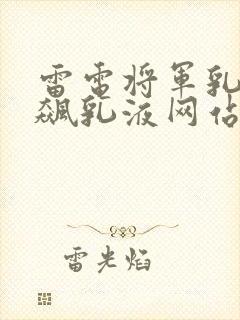 雷电将军乳
飙乳液网站
雷光焰